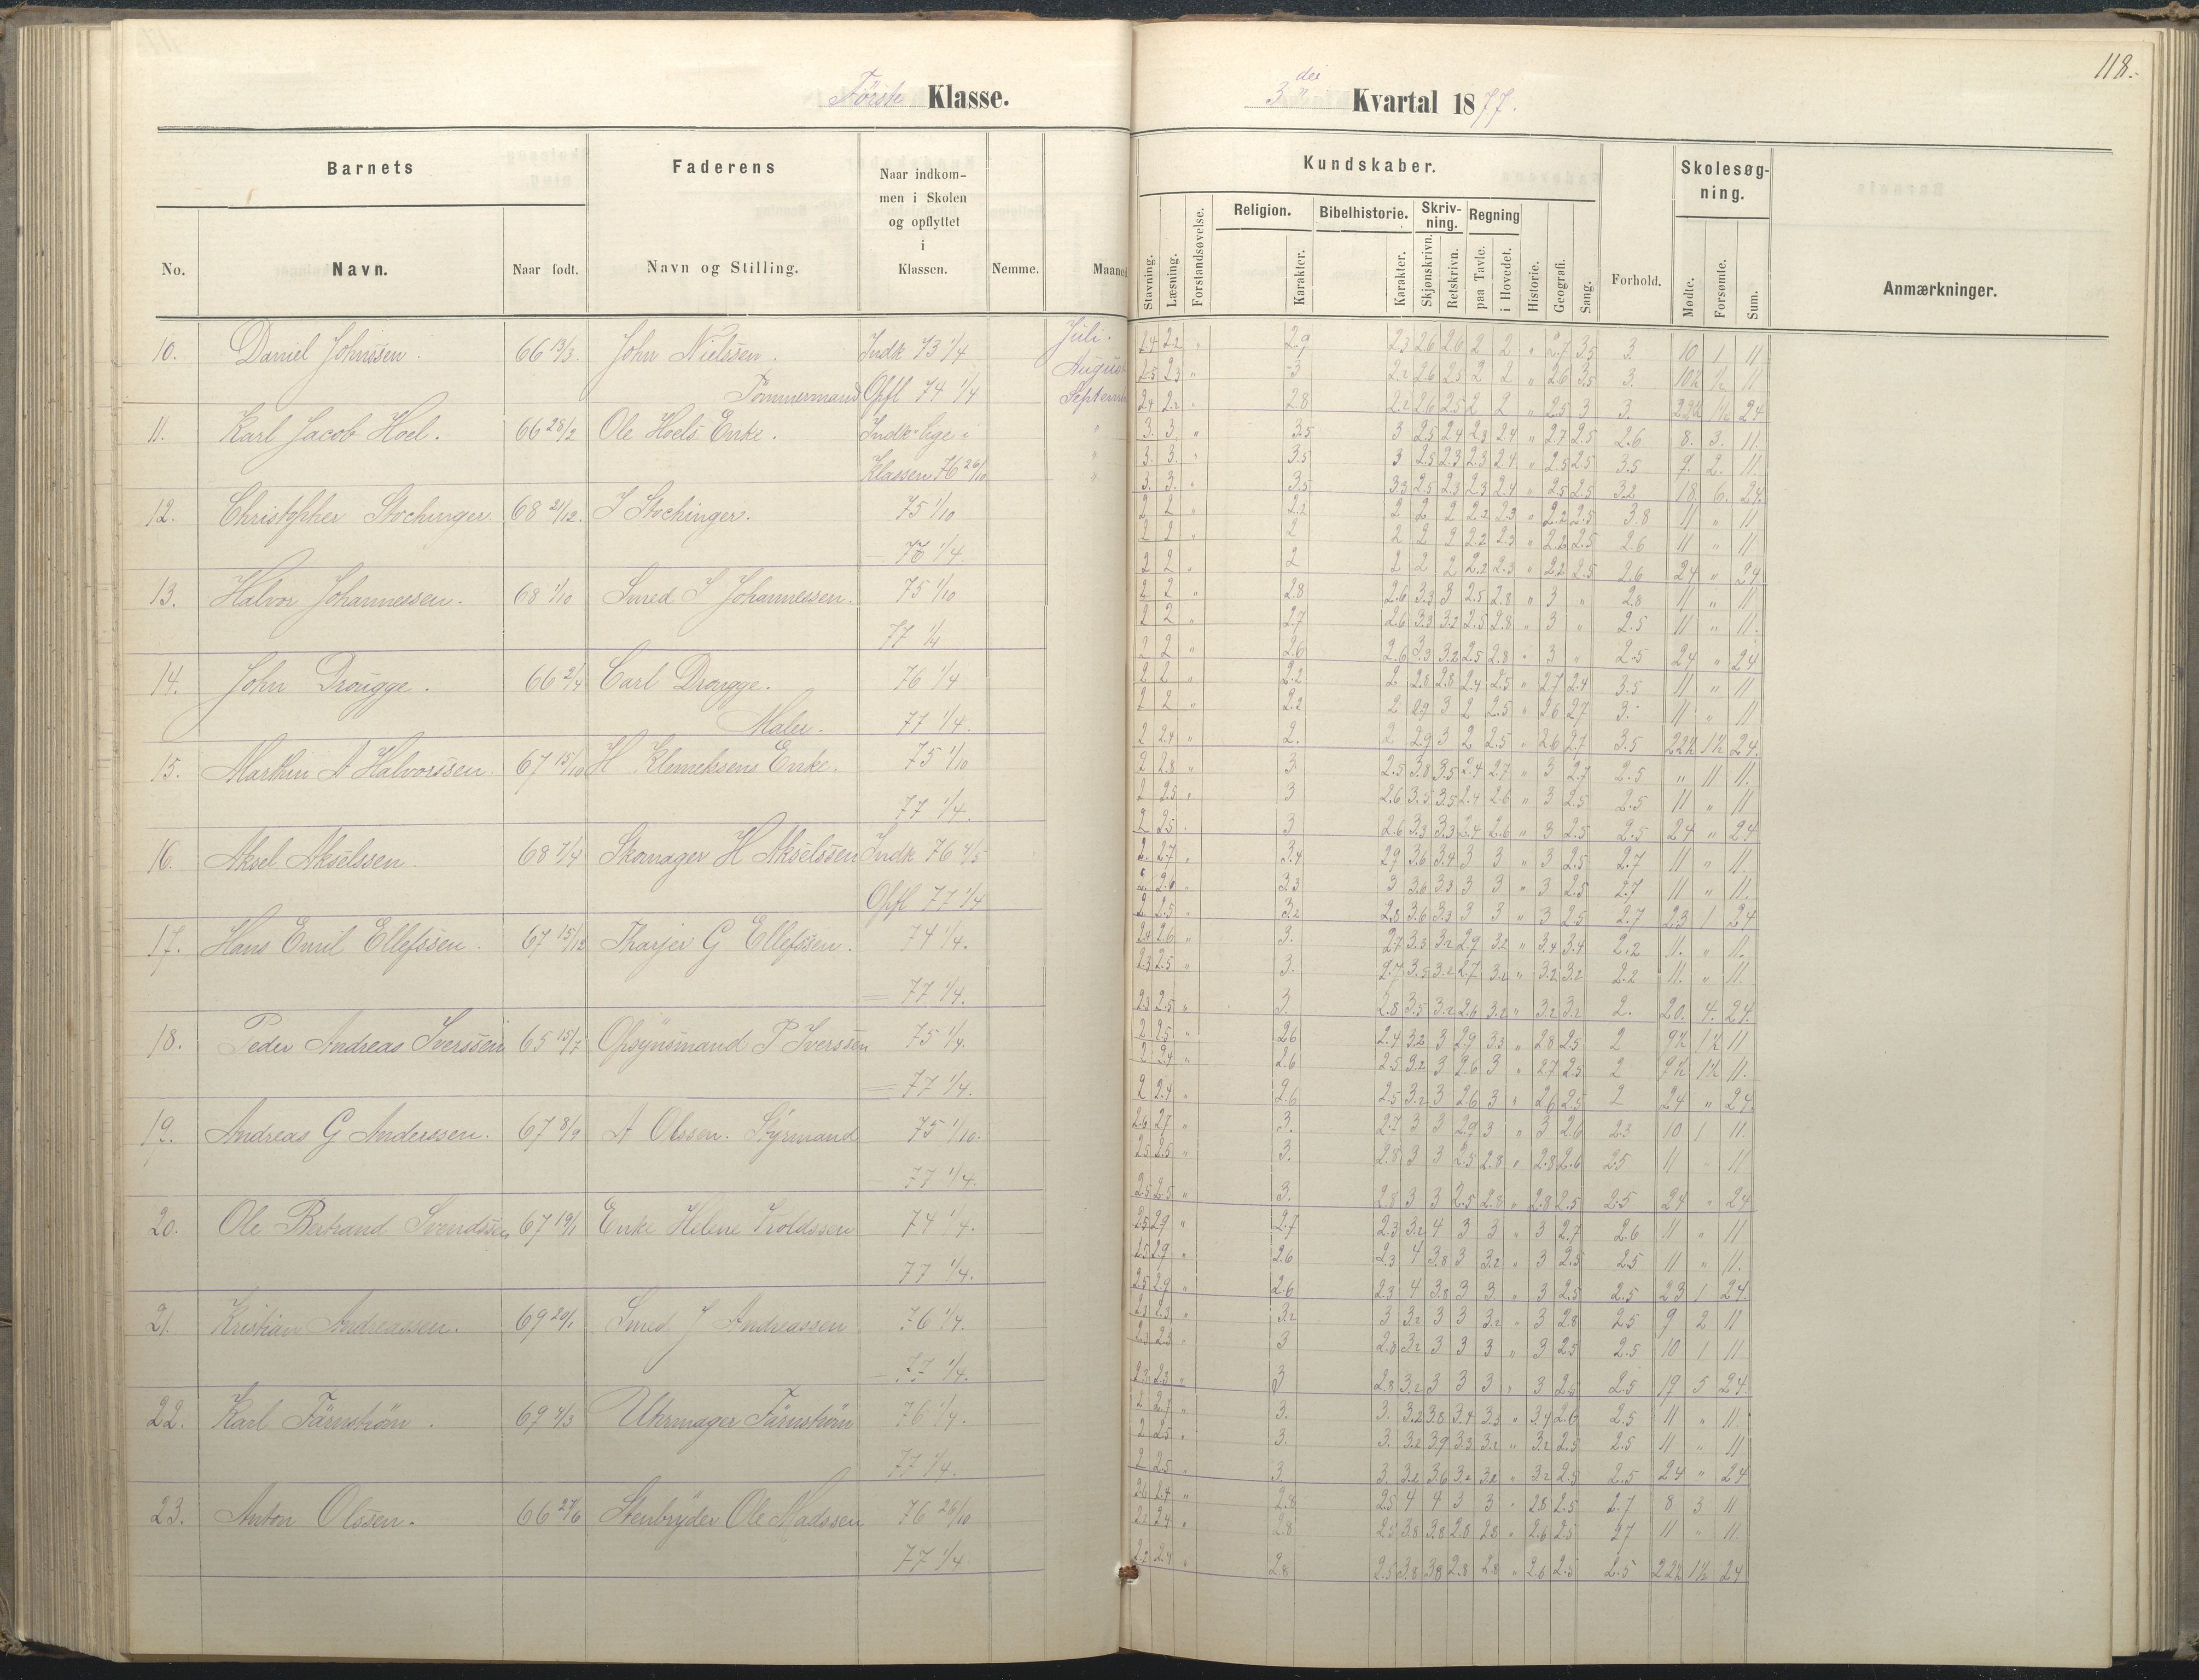 Förste Klasse.
Barnets
Faderens
Naar indkom-
men i Skolen
og opflyttet
i
Klassen.
No.
Navn.
Naar født.
Navn og Stilling.
Nemme.
Maaned
10. Daniel Johnssen. 66 13/3. John Nielssen. Indk 73 1/4 Juli.
Tömmermand Opfl 74 1/4 August
Septem
11. Karl Jacob Hoel. 66 28/2 Ole Hoels Enke. Indk. lige i "
Klassen 76 26/10 "
12. Christopher Stochinger 68 21/12. J Stochinger. 75 1/10
76 1/4.
13. Halvor Johannessen. 68 1/10 Smed J Johannessen. 75 1/10
77 1/4
14. John Drougge. 66 2/4 Carl Drougge. 76 1/4
Maler. 77 1/4.
15. Marthin A Halvorssen. 67 15/10 H Klemetsens Enke. 75 1/10
77 1/4.
16. Aksel Akselssen. 68 7/4 Skomager H Akselssen Indk 76 4/5
Opfl 77 1/4
17. Hans Emil Ellefssen. 67 15/12 Tharjer G Ellefssen. 74 1/4.
77 1/4.
18. Peder Andreas Iverssen 65 15/7 Opsynsmand P Iverssen 75 1/4.
77 1/4.
19. Andreas G Anderssen. 67 8/9 A Olssen. Styrmand 75 1/10.
77 1/4.
20. Ole Bertrand Svendssen 67 19/1 Enke Helene 74 1/4.
77 1/4.
21. Kristian Andreassen. 69 20/1 Smed J Andreassen 76 1/4.
77 1/4.
22. Karl Färnström. 69 4/3 Uhrmager Färnström 76 1/4.
77 1/4.
23. Anton Olssen. 66 27/6 Stenbryder Ole Madssen 76 26/10
77 1/4
118.
3die Kvartal 1877.
Kundskaber.
Skolesøg-
ning.
Religion.
Bibelhistorie.
Skriv-
ning.
Regning
Stavning.
Læsning.
Forstandsøvelse.
Karakter.
Karakter.
Skjønskrivn.
Retskrivn.
paa Tavle.
i Hovedet.
Historie.
Geografi.
Sang.
Forhold.
Mødte.
Forsømte.
Sum.
Anmærkninger.
2.4 2.2 " 2.9 2.3 2.6 2.6 2 2 " 2.7 3.5 3. 10 1 11
2.5 2.3 " 3 2.2 2.6 2.5 2 2 " 2.6 3.5 3. 10½ ½ 11
2.4 2.2 " 2.8 2.2 2.6 2.5 2 2 " 2.5 3 3. 22½ 1½ 24
3. 3. " 3.5 3 2.5 2.4 2.3 2.4 " 2.7 2.5 2.6 8. 3. 11.
3. 3. " 3.5 3 2.5 2.3 2.3 2.4 " 2.5 2.5 3.5 9. 2. 11.
3. 3. " 3.5 3.3 2.5 2.3 2.3 2.4 " 2.5 2.5 3.2 18. 6. 24.
2 2 " 2.2 2 2 2 2.2 2.3 " 2.2 2.5 3.8 11 " 11
2 2 " 2 2 2 2 2.2 2.3 " 2.2 2.5 2.6 11 " 11
2 2 " 2 2 2 2 2.2 2.3 " 2.2 2.5 2.6 24 " 24
2 2 " 2.8 2.6 3.3 3 2.5 2.8 " 3 " 2.8 11 " 11
2 2 " 2.7 2.6 3.3 3.2 2.5 2.8 " 3 " 2.5 11 " 11.
2 2 " 2.6 2.6 3.3 3.2 2.5 2.8 " 3 " 2.5 24 " 24
2 2 " 2.2 2 2.8 2.8 2.4 2.5 " 2.7 2.4 3.5 11 " 11
2 2 " 2.2 2 2.9 3 2 2.5 " 2.6 2.7 3. 11 " 11
2 2.4 " 2. 2 2.9 3 2 2.5 " 2.6 2.7 3.5 22½ 1½ 24.
2 2.8 " 3 2.5 3.8 3.5 2.4 2.7 " 3 2.7 2.5 " 11 11.
2 2.5 " 3 2.6 3.5 3.5 2.4 2.6 " 3 2.5 2.5 11 " 11
2 2.5 " 3 2.6 3.3 3.3 2.4 2.6 " 3 2.5 2.5 24 " 24
2. 2.7 " 3.4 2.9 3.6 3.4 3 3 " 3 2.5 2.7 11 " 11.
2 2.6 " 3.3 3 3.6 3.3 3 3 " 3 2.5 2.7 11 " 11.
2 2.5 " 3.2 2.8 3.6 3.3 3 3 " 3 2.5 2.7 23 1 24
2.4 2.6 " 3. 2.7 3.3 3.2 2.9 3.2 " 3.4 3.4 2.2 11. " 11.
2.3 2.5 " 3. 2.7 3.5 3.2 2.7 3.2 " 3.2 3.2 2.2 11. " 11.
2.3 2.5 " 3. 2.8 3.5 3.2 2.6 3.2 " 3.2 3.2 2. 20. 4. 24.
2 2.5 " 2.6 2.4 3.2 3 2.9 3.3 " 2.8 2.5 2 9½ 1½ 11
2 2.4 " 2.6 2.5 3.2 3 2.6 3 " 2.7 2.5 2 9½ 1½ 11.
2 2.4 " 2.6 2.5 3.2 3 2.6 3 " 2.6 2.5 2 24 " 24.
2.6 2.7 " 3. 2.7 3 3 2.9 3 " 3 2.6 2.3 10 1 11.
2.5 2.5 " 3. 2.8 3 3 2.5 2.8 " 2.8 2.6 2.5 11 " 11
2.5 2.5 " 3. 2.8 3 3 2.5 2.8 " 2.8 2.5 2.5 24 " 24
2.5 2.9 " 2.7 2.3 3.2 4 3 3 " 3 2.7 2.6 11 " 11
2.5 2.9 " 2.6 2.3 4 3.8 3 3.2 " 3 2.5 2.5 11 " 11.
2.5 2.9 " 2.6 2.3 4 3.8 3 3. " 3 2.5 2.5 23 1 24.
2.3 2.3 " 3.2 3 3.2 3 3 3.2 " 3 2.8 2.5 9 2 11
2.3 2.3 " 3 2.8 3.2 3 3 3 " 3 2.5 2.5 10 1 11
2.3 2.3 " 3 2.8 3.2 3 3 3 " 3 2.5 2.5 19 5 24.
2 2.7 " 3. 3. 3.2 3.8 3.4 3.3 " 3.4 2.6 2.5 11 " 11.
2 2.5 " 3. 3. 3.2 3.9 3.3 3.2 " 3.2 2.5 2.5 11 " 11
2 2.5 " 3. 3. 3.2 3.6 3.2 3.2 " 3.2 2.5 2.5 24 " 24
2.6 2.4 " 2.8 2.5 4 4 3 3 " 2.8 2.5 2.7 8 3 11
2.2 2.4 " 2.8 2.5 3.8 3.8 2.8 2.8 " 2.6 2.5 2.7 11 " 11.
2.2 2.4 " 2.8 2.5 3.8 3.8 2.8 2.8 " 2.6 2.5 2.5 22½ 1½ 24